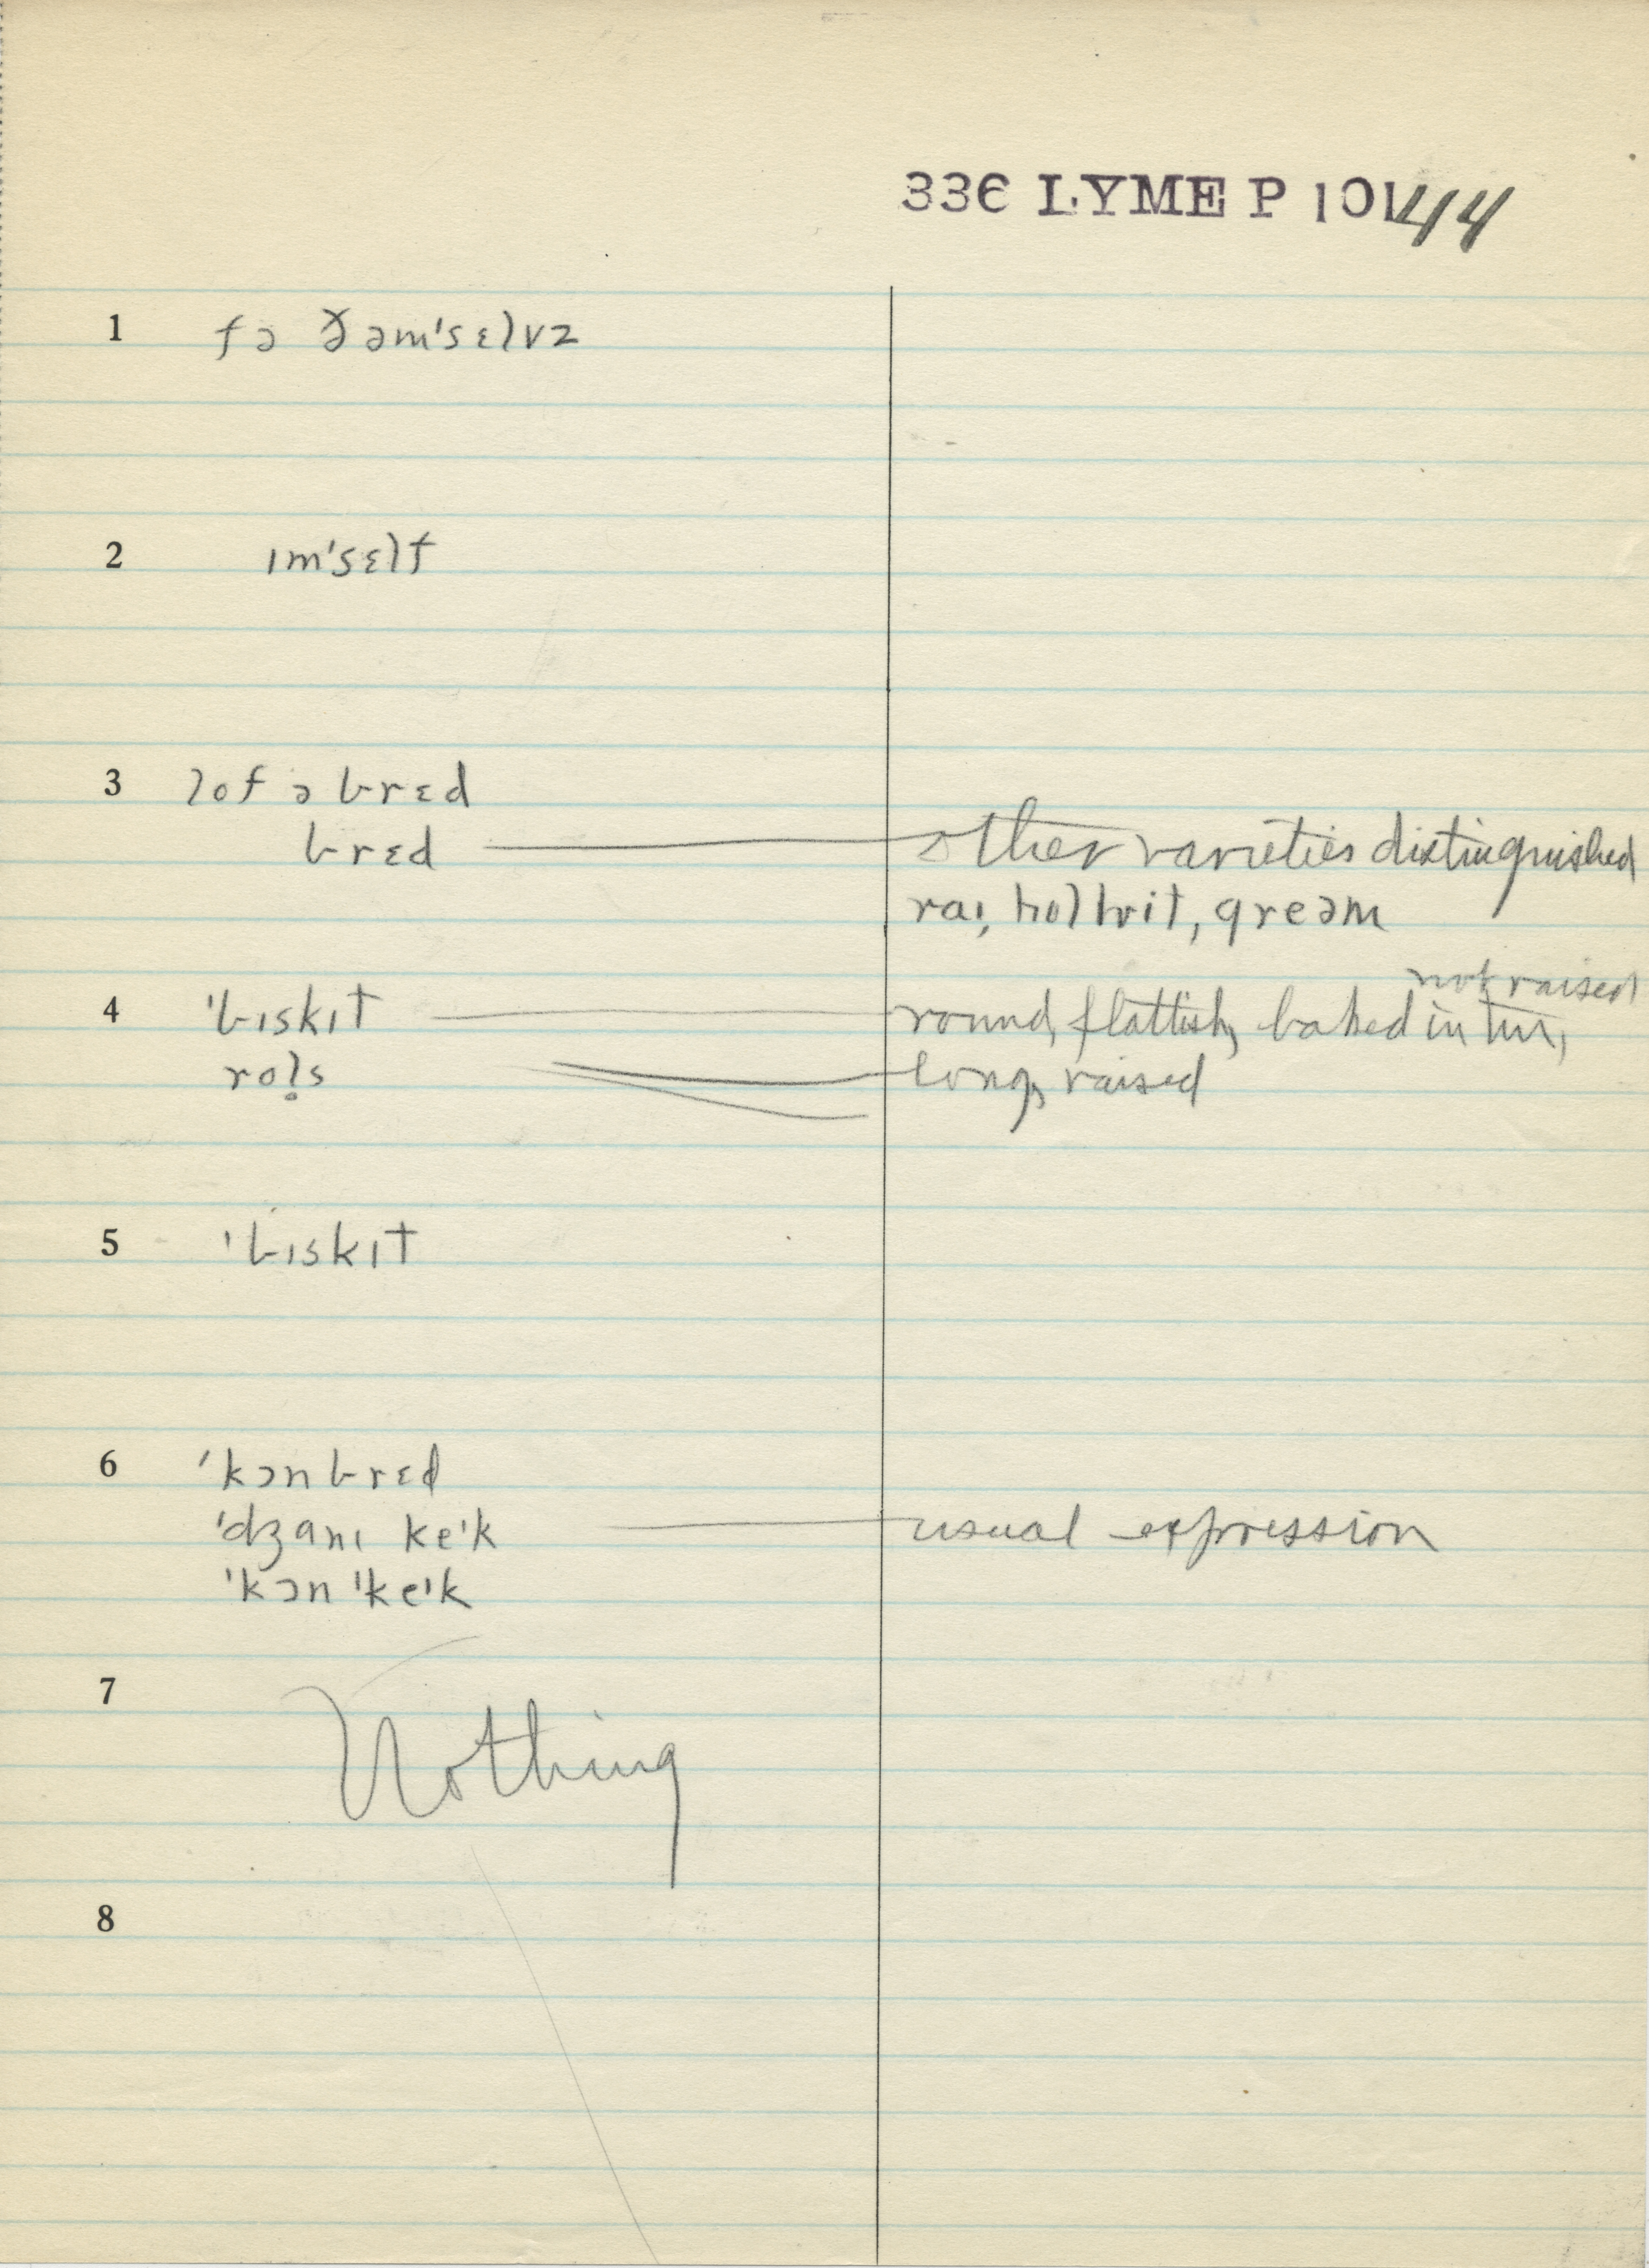 336 LYME P 101 44
1 fə ðəm'sɛlvz
2 ɪm'sɛlf
3 lof ə brɛd
brɛd other varieties distinguished
raɪ, holhwit, greəm
not raised
4 'bɪskɪt round, flattish, baked in tin,
rol̥s long, raised
5 'bɪskɪt
6 'kɔnbrɛd
'dʒanɪ keˈk usual expression
'kɔn 'keˈk
7 Nothing
8